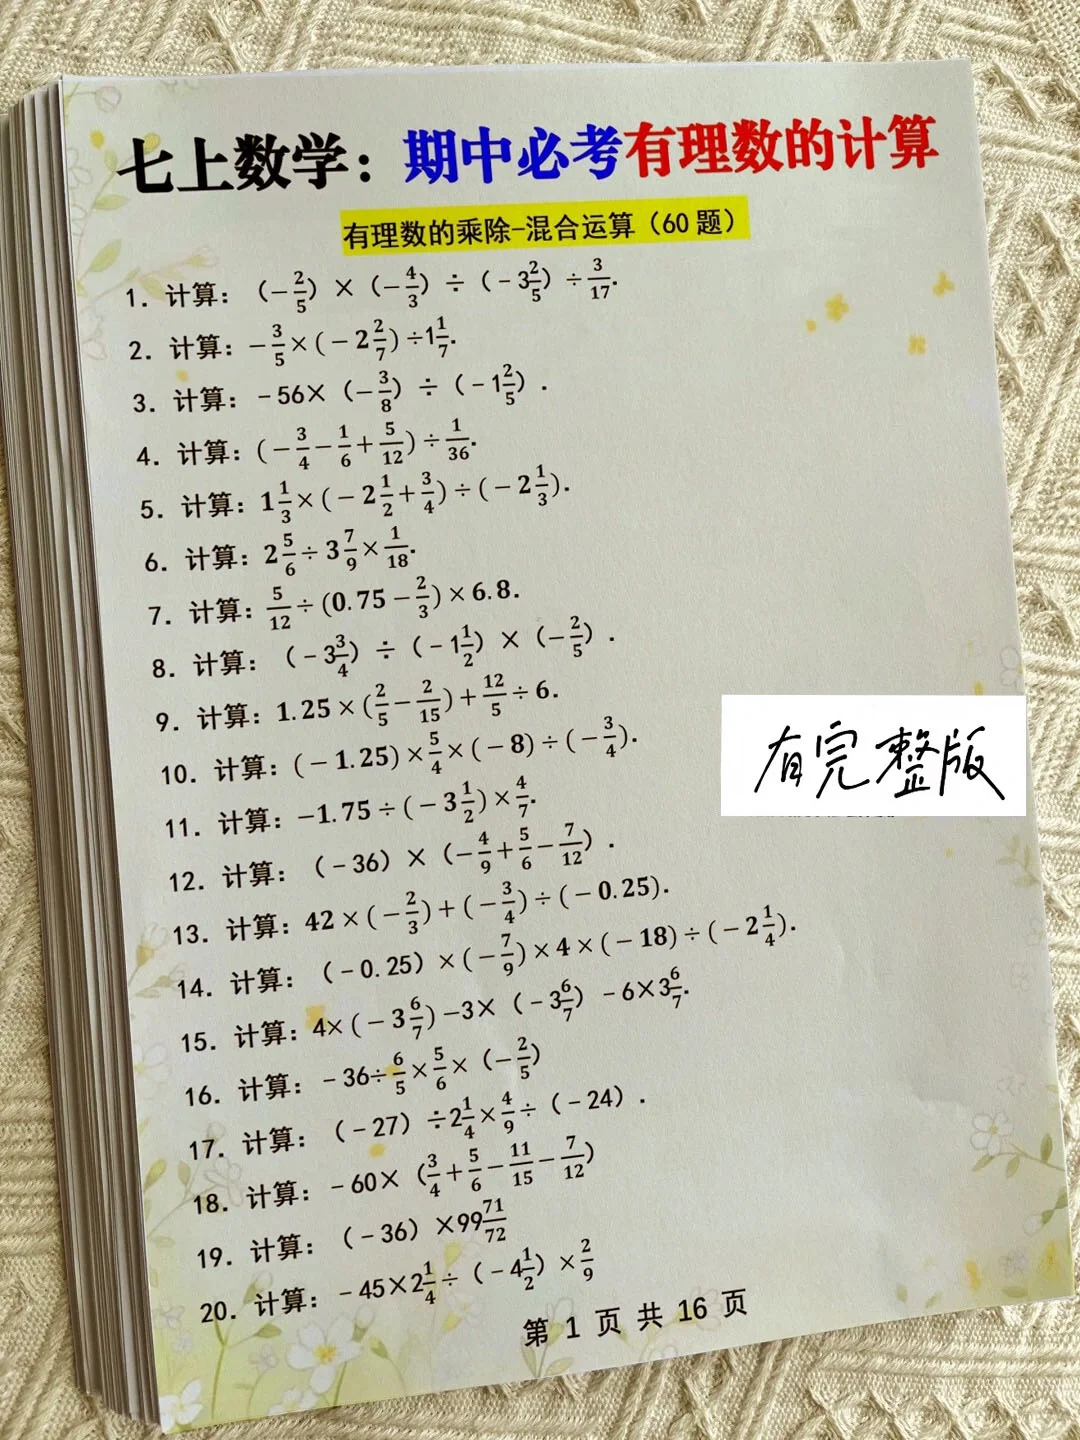 七上数学：期中必考有理数的计算
有理数的乘除-混合运算（60 题）
1. 计算：（-2/5）×（-4/3）÷（-3 2/5）÷3/17.
2. 计算：-3/5×(-2 2/7)÷1 1/7.
3. 计算：-56×（-3/8）÷（-1 2/5）.
4. 计算：(-3/4-1/6+5/12)÷1/36.
5. 计算：1 1/3×(-2 1/2+3/4)÷(-2 1/3).
6. 计算：2 5/6÷3 7/9×1/18.
7. 计算：5/12÷(0.75-2/3)×6.8.
8. 计算：（-3 3/4）÷（-1 1/2）×（-2/5）.
9. 计算：1.25×(2/5-2/15)+12/5÷6.
10. 计算：(-1.25)×5/4×(-8)÷(-3/4).
11. 计算：-1.75÷(-3 1/2)×4/7.
12. 计算：（-36）×（-4/9+5/6-7/12）.
13. 计算：42×(-2/3)+(-3/4)÷(-0.25).
14. 计算：（-0.25）×(-7/9)×4×(-18)÷(-2 1/4).
15. 计算：4×(-3 6/7)-3×（-3 6/7）-6×3 6/7.
16. 计算：-36÷6/5×5/6×（-2/5）
17. 计算：（-27）÷2 1/4×4/9÷（-24）.
18. 计算：-60×（3/4+5/6-11/15-7/12）
19. 计算：（-36）×99 71/72
20. 计算：-45×2 1/4÷（-4 1/2）×2/9
有完整版
第 1 页 共 16 页